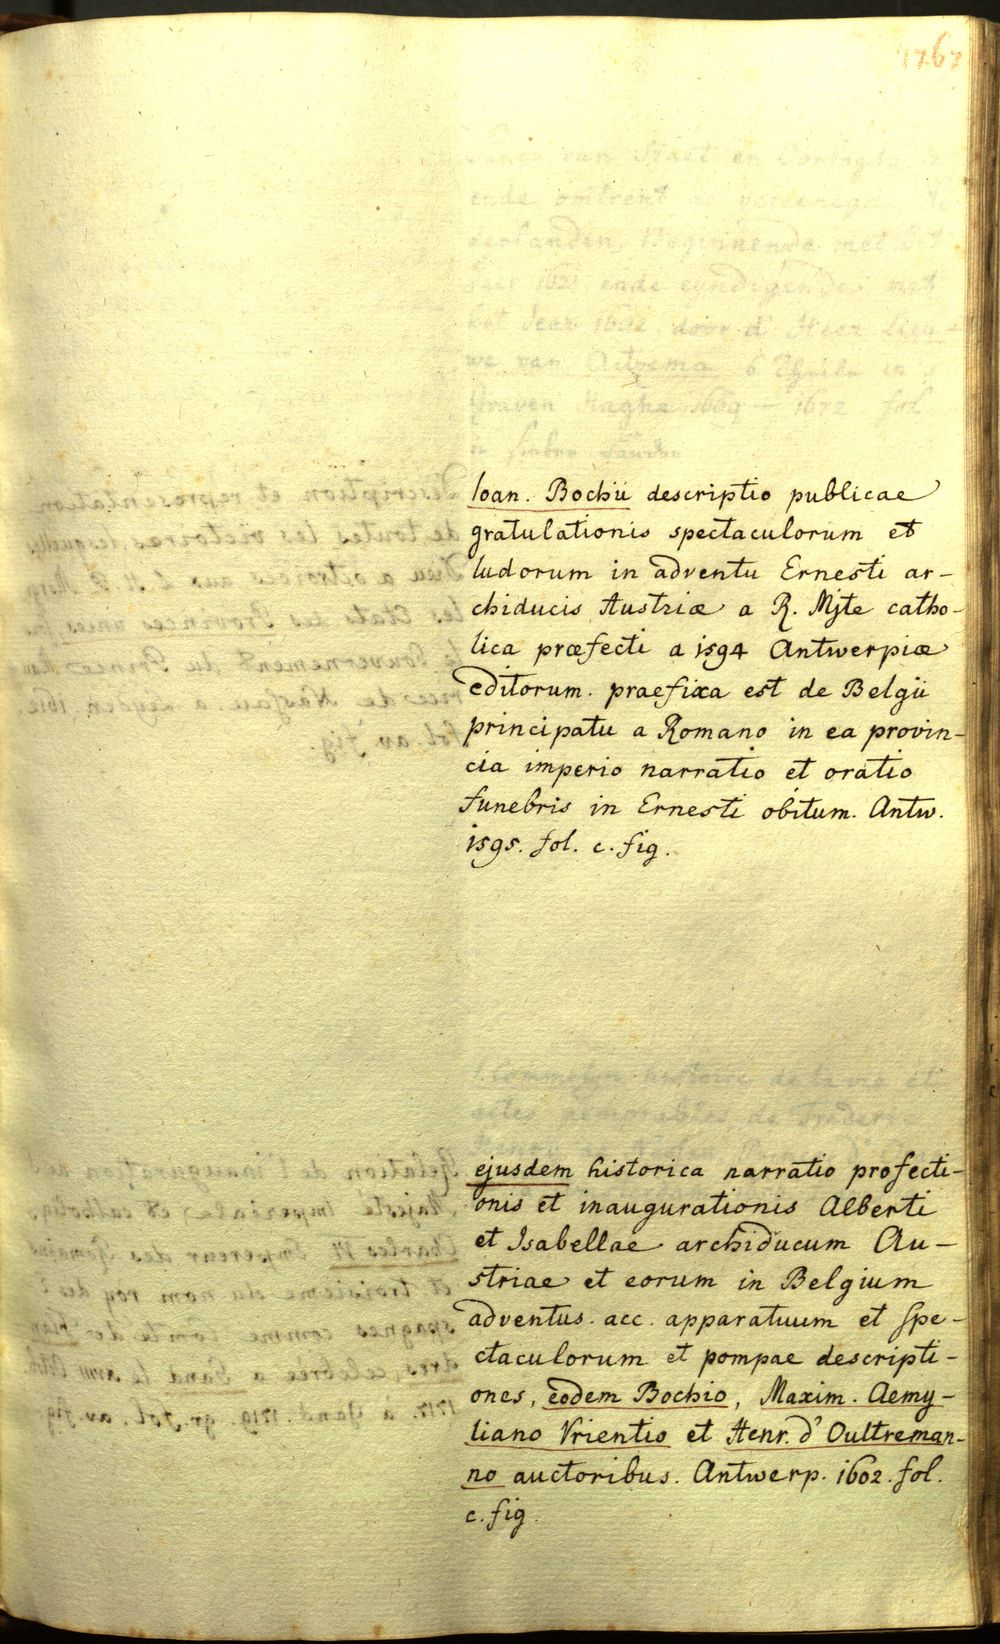 1767
Ioan. Bochii descriptio publicae
gratulationis spectaculorum et
ludorum in adventu Ernesti ar-
chiducis Austriæ a R. Mjte catho-
lica præfecti a 1594 Antwerpiæ
editorum. praefixa est de Belgii
principatu a Romano in ea provin-
cia imperio narratio et oratio
funebris in Ernesti obitum. Antw.
1595. fol. c. fig.
ejusdem historica narratio profecti-
onis et inaugurationis Alberti
et Isabellae archiducum Au-
striae et eorum in Belgium
adventus. acc. apparatuum et spe-
ctaculorum et pompae descripti-
ones, eodem Bochio, Maxim. Aemy-
liano Vrientio et Henr. d'Oultreman-
no auctoribus. Antwerp. 1602. fol.
c. fig.